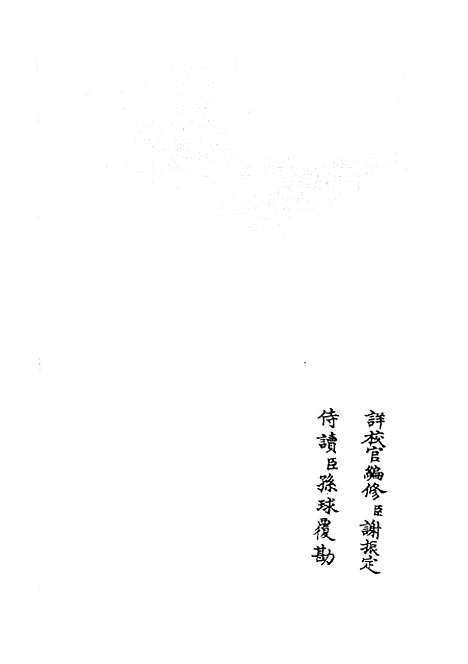 詳校官編修臣謝振定
侍讀臣孫球覆勘